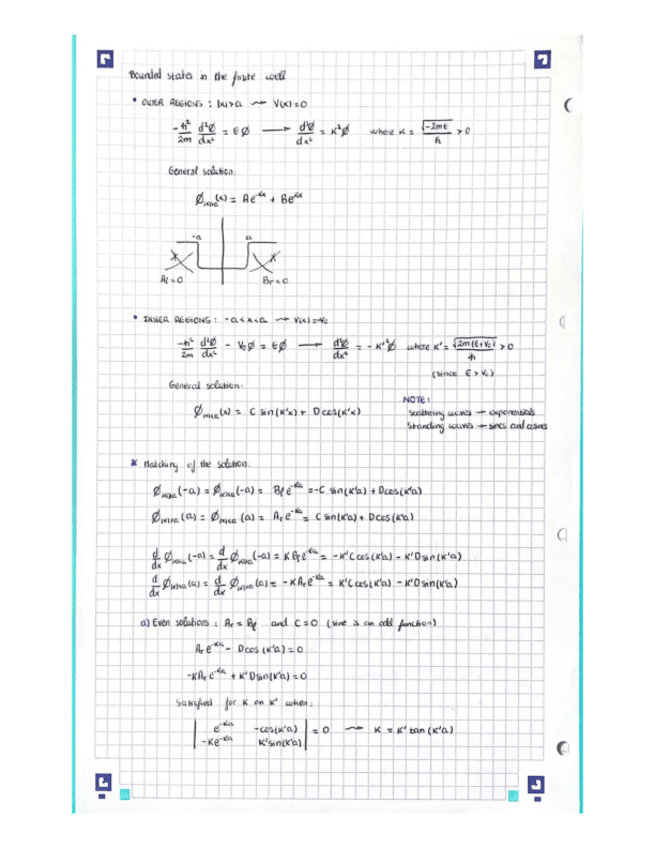 Bounded states in the finite well
• OUTER REGIONS : |x|>a ⟿ V(x)=0
-ħ²/2m d²Ø/dx² = EØ ⟶ d²Ø/dx² = K²Ø where K = √-2mE/ħ > 0
General solution:
Ø|x|>a(x) = Ae^-Kx + Be^Kx
-a a
Al=0 Br=0
• INNER REGIONS : -a<x<a ⟿ V(x)=-V₀
-ħ²/2m d²Ø/dx² - V₀Ø = EØ ⟶ d²Ø/dx² = -K'²Ø where K' = √2m(E+V₀)/ħ > 0
(since E > V₀)
General solution:
Ø|x|<a(x) = C sin(K'x) + D cos(K'x)
NOTE:
Scattering waves → exponentials
Standing waves → sines and cosines
* Matching of the solution
Ø|x|>a(-a) = Ø|x|<a(-a) = Bl e^-Ka = -C sin(K'a) + D cos(K'a)
Ø|x|>a(a) = Ø|x|<a(a) = Ar e^-Ka = C sin(K'a) + D cos(K'a)
d/dx Ø|x|>a(-a) = d/dx Ø|x|<a(-a) = K Bl e^-Ka = -K'C cos(K'a) - K'D sin(K'a)
d/dx Ø|x|>a(a) = d/dx Ø|x|<a(a) = -K Ar e^-Ka = K'C cos(K'a) - K'D sin(K'a)
a) Even solutions : Ar = Bl and C=0 (sine is an odd function)
Ar e^-Ka - D cos(K'a) = 0
-K Ar e^-Ka + K'D sin(K'a) = 0
Satisfied for K on K' when:
| e^-Ka -cos(K'a) | = 0 ⟿ K = K' tan(K'a)
| -Ke^-Ka K'sin(K'a) |